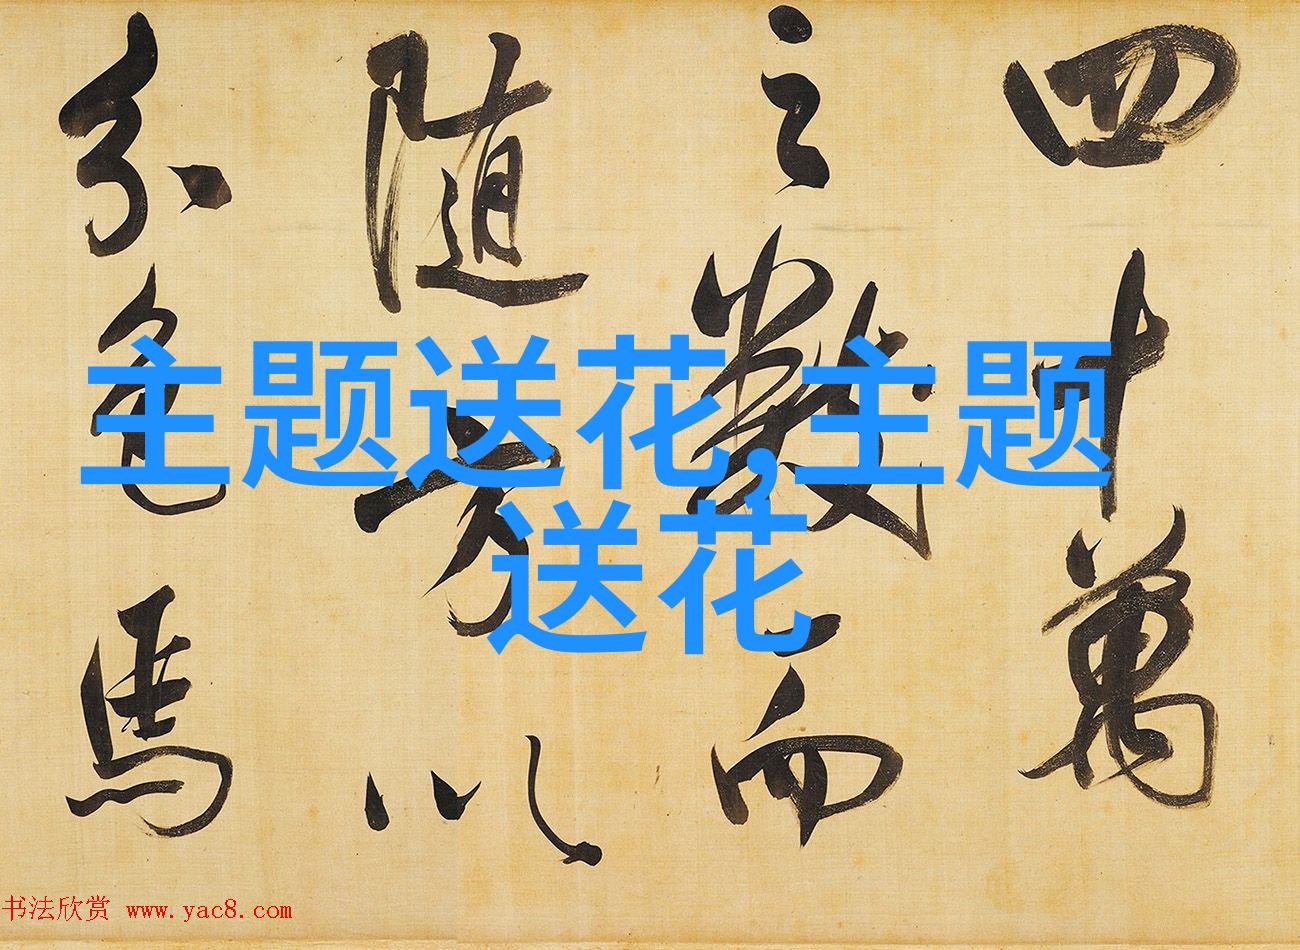 四十萬
之數而
隨方以
分色焉
主题送花,主题
送花
书法欣赏 www.yac8.com